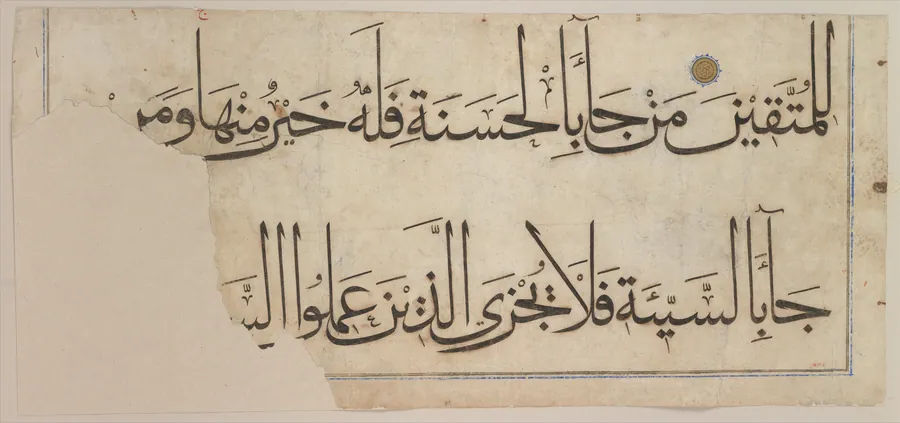 لِلْمُتَّقِينَ مَنْ جَآءَ بِالْحَسَنَةِ فَلَهُ خَيْرٌ مِنْهَا وَمَنْ
جَآءَ بِالسَّيِّئَةِ فَلَا يُجْزَى الَّذِينَ عَمِلُوا